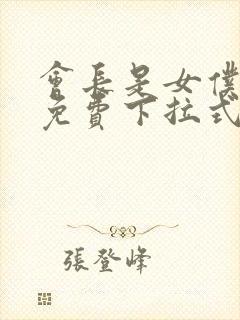 會長是女僕
免費下拉式
張登峰